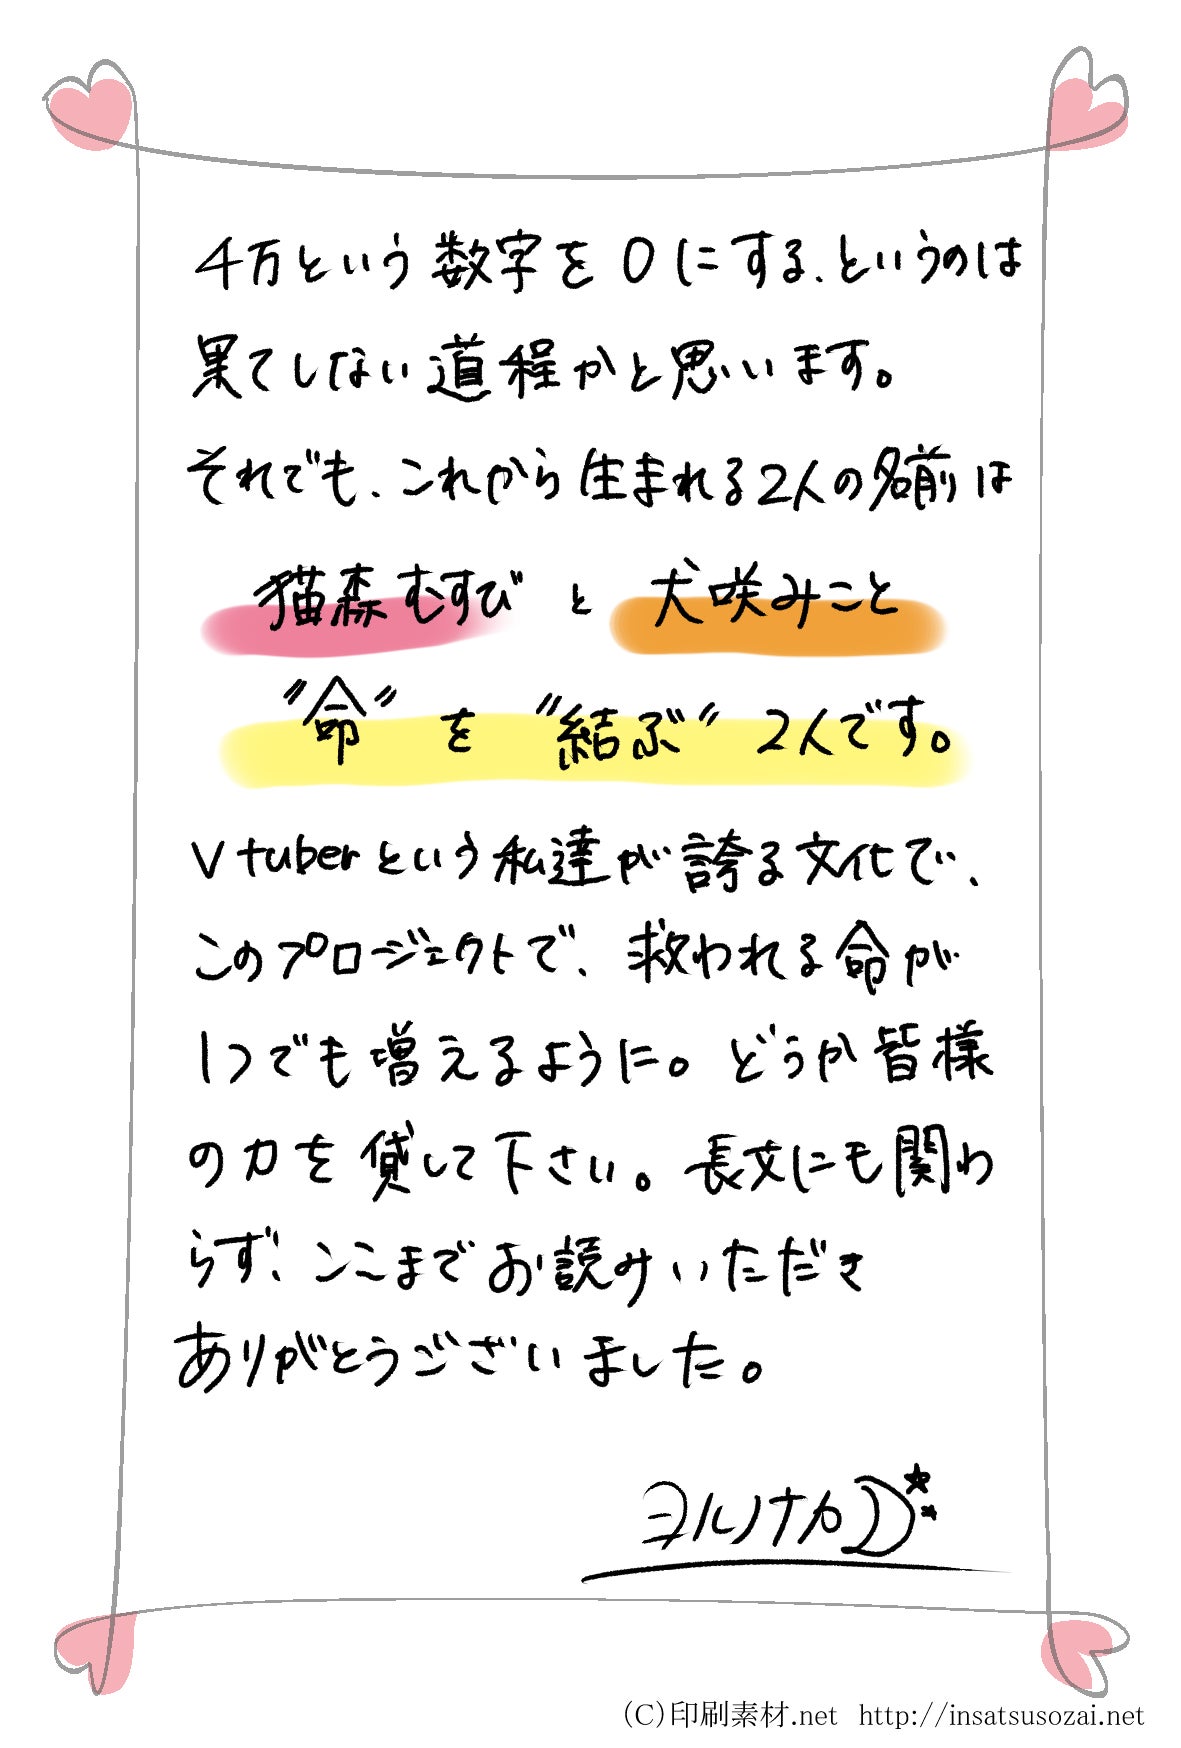 4万という数字を0にする、というのは
果てしない道程かと思います。
それでも、これから生まれる2人の名前は
猫森むすび と 犬咲みこと
"命" を "結ぶ" 2人です。
Vtuberという私達が誇る文化で、
このプロジェクトで、救われる命が
1つでも増えるように。どうか皆様
の力を貸して下さい。長文にも関わ
らず、ここまでお読みいただき
ありがとうございました。
ヨルノナカD
(C)印刷素材.net http://insatsusozai.net